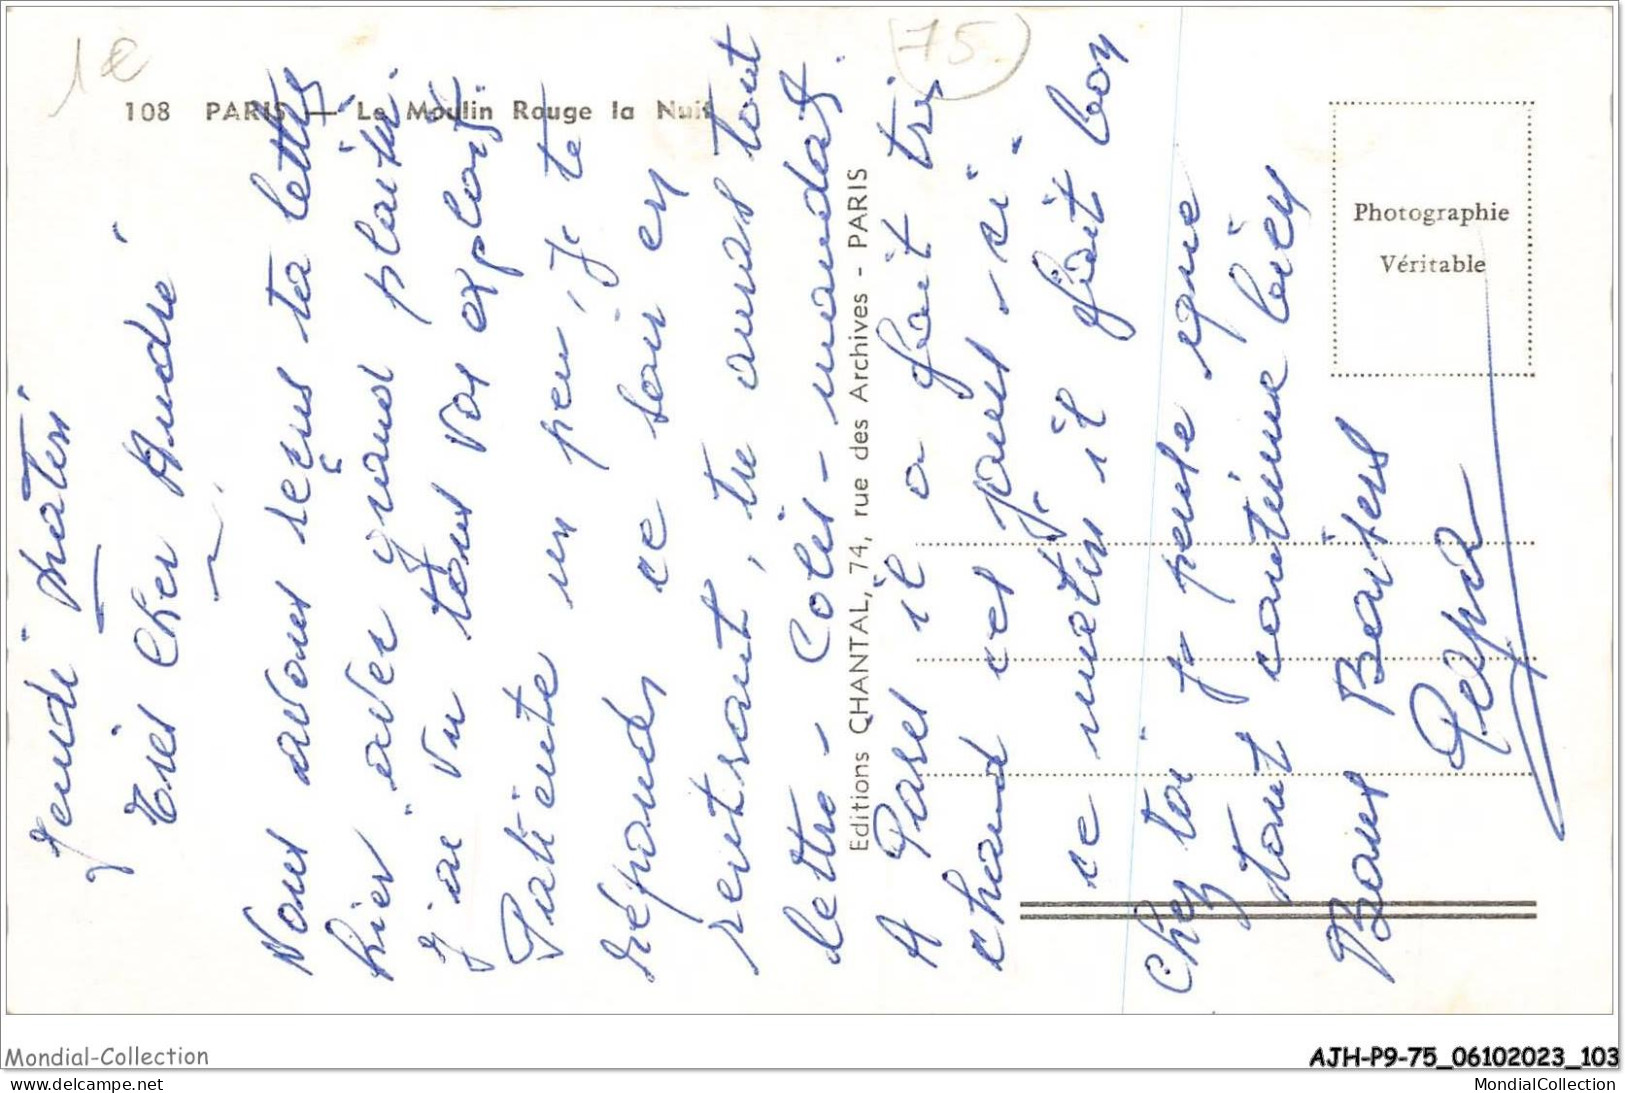 1€
75
108 PARIS — Le Moulin Rouge la Nuit
Photographie
Véritable
Editions CHANTAL, 74, rue des Archives - PARIS
Jeudi matin
Très Cher André
Nous avons reçus ta lettre
hier avec grand plaisir.
J'ai vu tous vos exploits.
Patiente un peu, Je te
réponds ce soir en
rentrant, tu auras tout
lettre - Colis - mandat.
A Paris il a fait très
chaud ces jours-ci.
ce matin il fait bon
Chez toi je pense que
tout continue bien
Bons Baisers
Mondial-Collection
AJH-P9-75_06102023_103
www.delcampe.net
MondialCollection